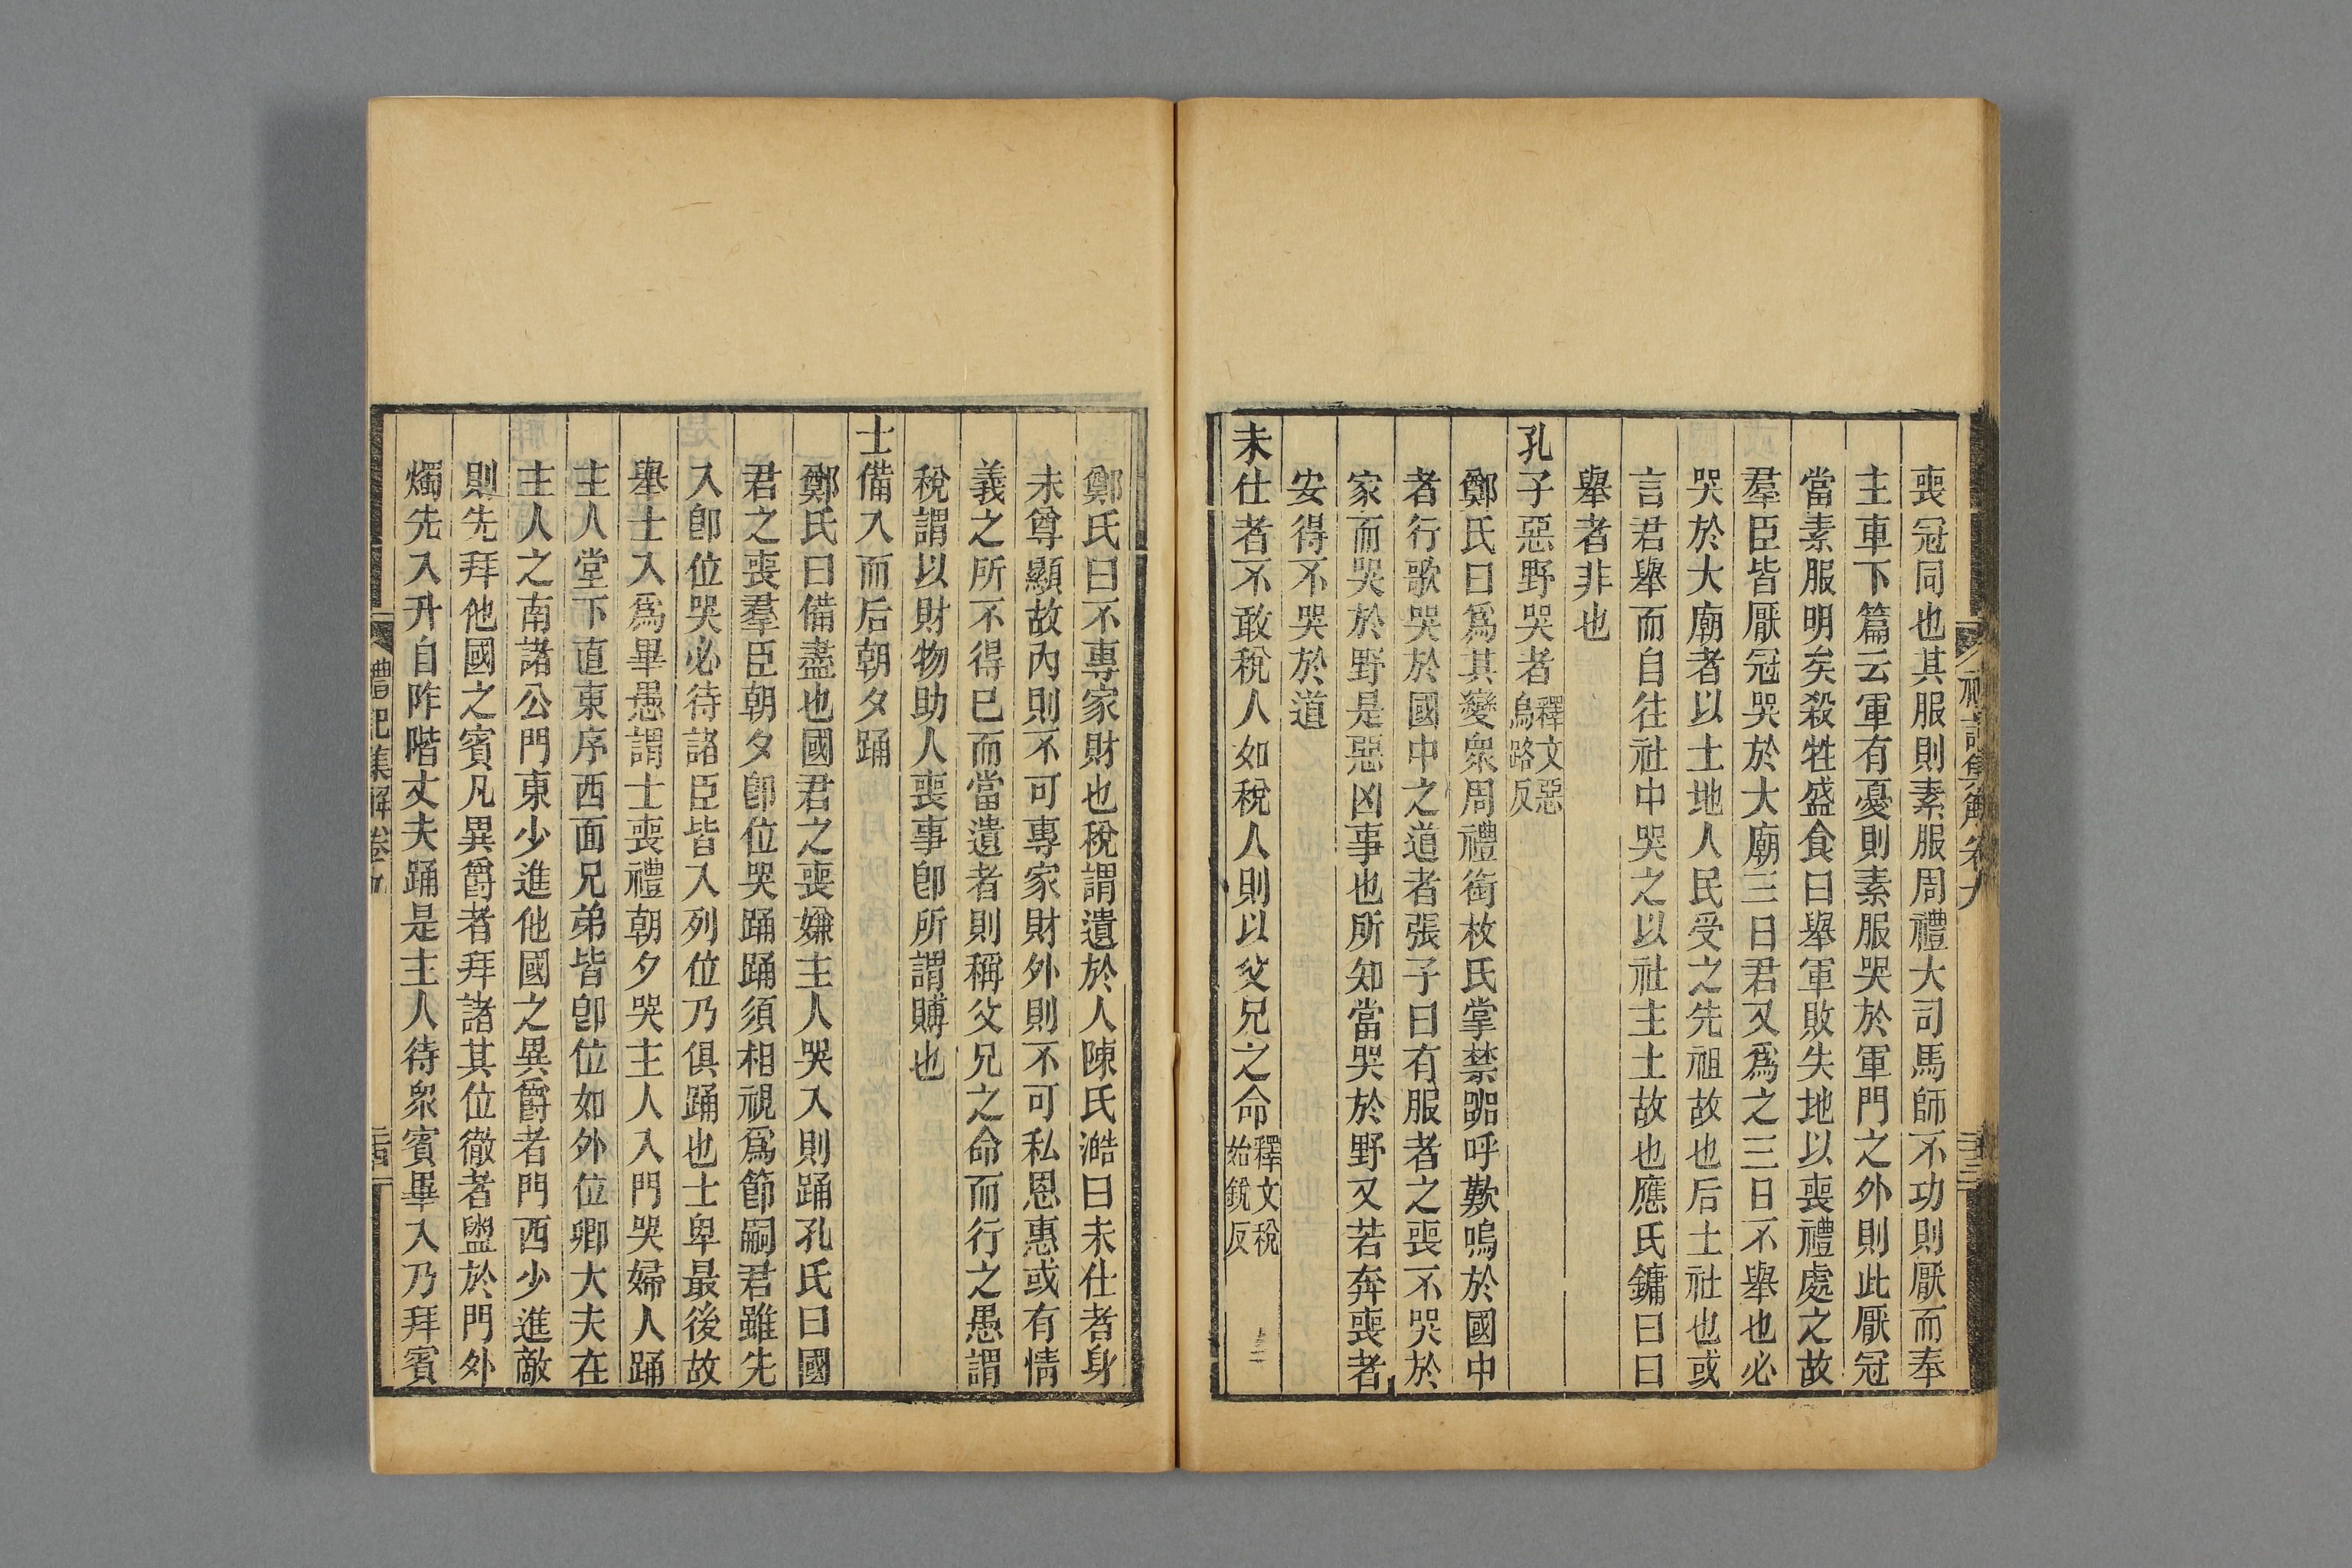 喪冠同也其服則素服周禮大司馬師不功則厭而奉
主車下篇云軍有憂則素服哭於軍門之外則此厭冠
當素服明矣殺牲盛食曰舉軍敗失地以喪禮處之故
羣臣皆厭冠哭於大廟三日君又爲之三日不舉也必
哭於大廟者以土地人民受之先祖故也后土社也或
言君舉而自往社中哭之以社主土故也應氏鏞曰曰
舉者非也
孔子惡野哭者釋文惡烏路反
鄭氏曰爲其變衆周禮銜枚氏掌禁嘂呼歎嗚於國中
者行歌哭於國中之道者張子曰有服者之喪不哭於
家而哭於野是惡凶事也所知當哭於野又若奔喪者
安得不哭於道
未仕者不敢稅人如稅人則以父兄之命釋文稅始銳反
鄭氏曰不專家財也稅謂遺於人陳氏澔曰未仕者身
未尊顯故內則不可專家財外則不可私恩惠或有情
義之所不得已而當遺者則稱父兄之命而行之愚謂
稅謂以財物助人喪事卽所謂賻也
士備入而后朝夕踊
鄭氏曰備盡也國君之喪嫌主人哭入則踊孔氏曰國
君之喪羣臣朝夕卽位哭踊踊須相視爲節嗣君雖先
入卽位哭必待諸臣皆入列位乃俱踊也士卑最後故
舉士入爲畢愚謂士喪禮朝夕哭主人入門哭婦人踊
主人堂下直東序西面兄弟皆卽位如外位卿大夫在
主人之南諸公門東少進他國之異爵者門西少進敵
則先拜他國之賓凡異爵者拜諸其位徹者盥於門外
燭先入升自阼階丈夫踊是主人待衆賓畢入乃拜賓
禮記集解卷九